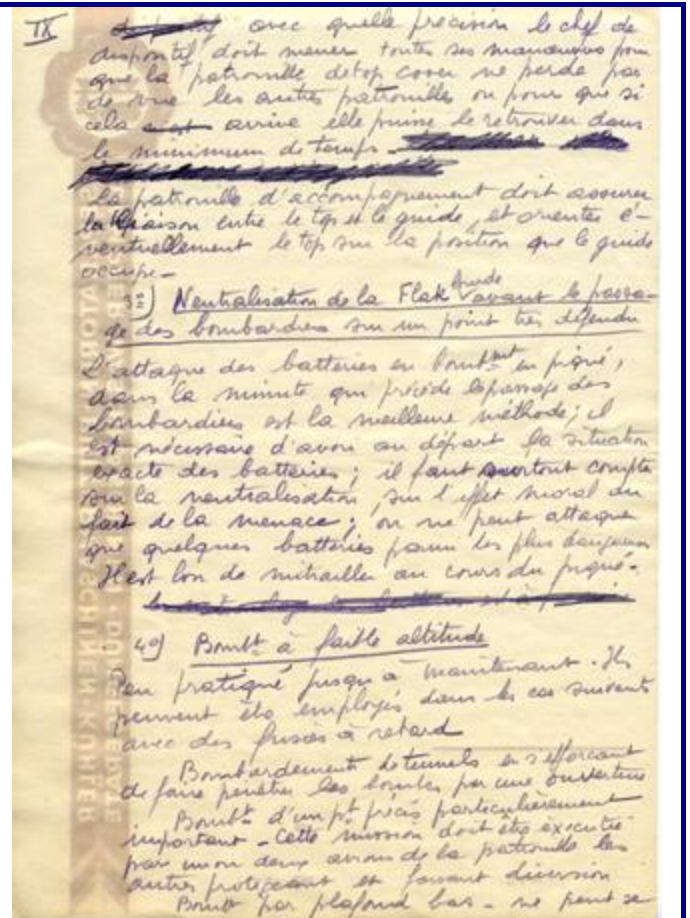 IX
avec quelle précision le chef de
dispositif doit mener toutes ses manœuvres pour
que la patrouille de top cover ne perde pas
de vue les autres patrouilles ou pour que si
cela arrive elle puisse le retrouver dans
le minimum de temps -
La patrouille d'accompagnement doit assurer
la liaison entre le top et le guide, et orienter é-
ventuellement le top sur la position que le guide
occupe -
3º) Neutralisation de la Flak lourde avant le passa-
ge des bombardiers sur un point très défendu
L'attaque des batteries en bombt en piqué,
dans la minute qui précède le passage des
bombardiers est la meilleure méthode ; il
est nécessaire d'avoir au départ la situation
exacte des batteries ; il faut surtout compter
sur la neutralisation, sur l'effet moral du
fait de la menace ; on ne peut attaquer
que quelques batteries parmi les plus dangereuses
Il est bon de mitrailler au cours du piqué -
4º) Bombt à faible altitude
Peu pratiqué jusqu'à maintenant. Ils
peuvent être employés dans les cas suivants
avec des fusées à retard
Bombardements de tunnels en s'efforçant
de faire pénétrer les bombes par une ouverture
Bombt d'un pt précis particulièrement
important - Cette mission doit être exécutée
par un ou deux avions de la patrouille les
autres protégeant et faisant diversion
Bombt par plafond bas - ne peut se